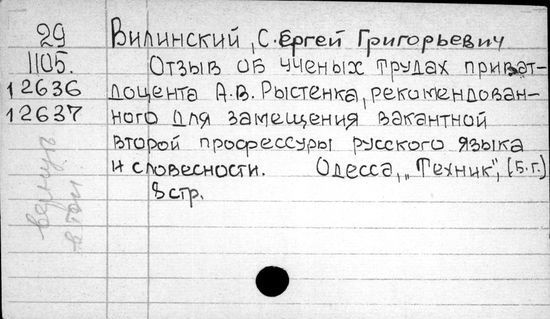 29 Вилинский, Сергей Григорьевич
1105. Отзыв об ученых трудах приват-
12636 доцента А.В. Рыстенка, рекомендован-
12637 ного для замещения вакантной
второй профессуры русского языка
и словесности. Одесса, „Техник", (б.г.)
8 стр.
вернул